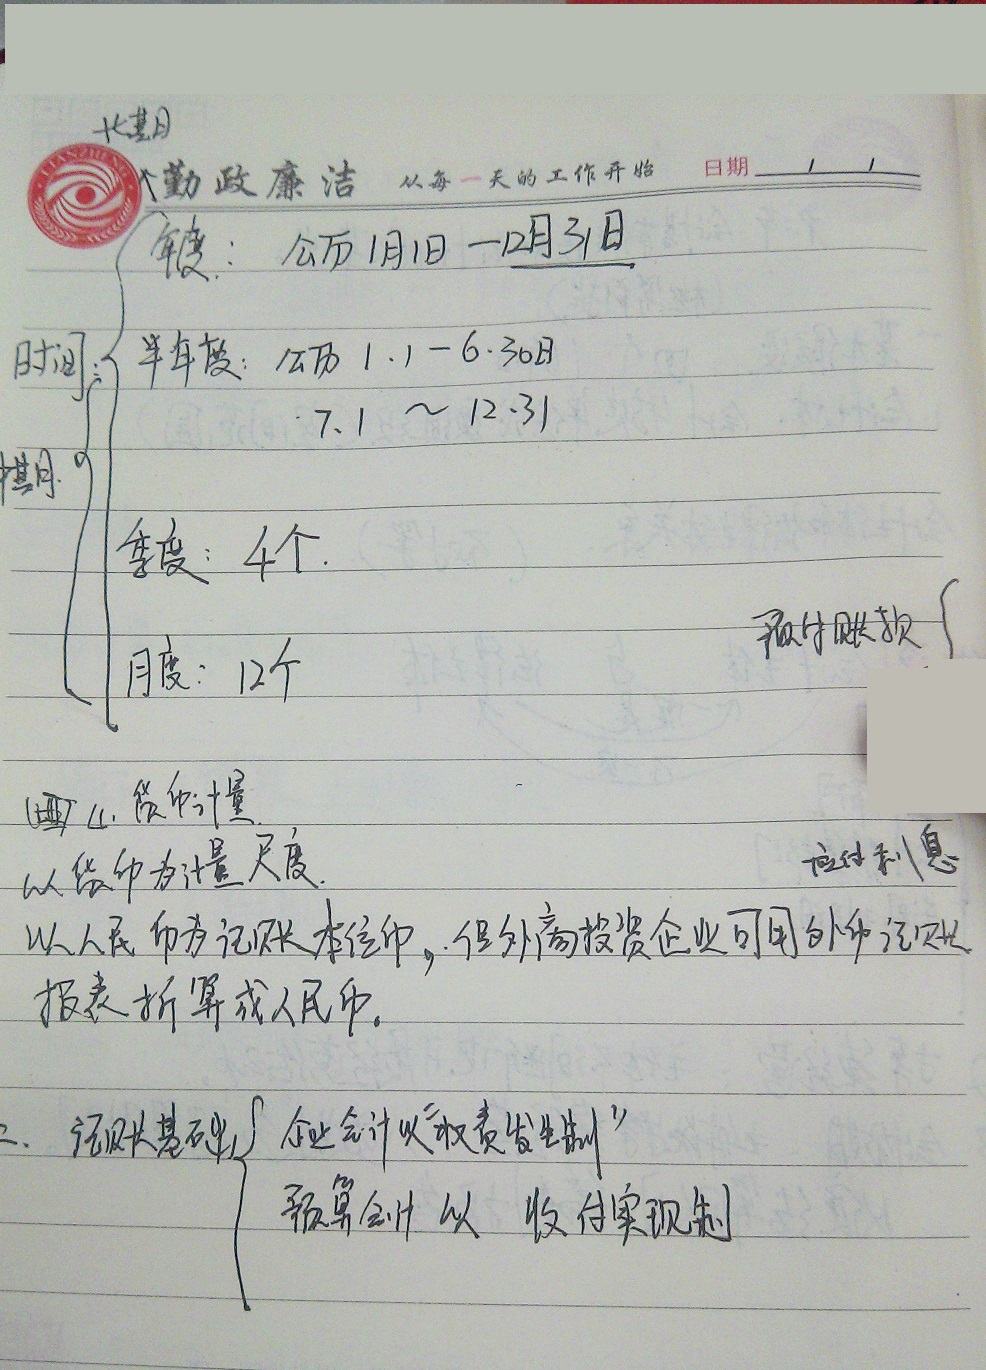 长期
LIANZHENG
勤政廉洁 从每一天的工作开始 日期 / /
年度： 公历1月1日－12月31日
时间：
半年度：公历 1.1－6.30日
7.1 ～ 12.31
中期
季度：4个.
预付账款
月度：12个
(四) 货币计量
以货币为计量尺度.
应付利息
以人民币为记账本位币，但外商投资企业可用外币记账
报表折算成人民币。
二、记账基础 企业会计以“权责发生制”
预算会计以 收付实现制